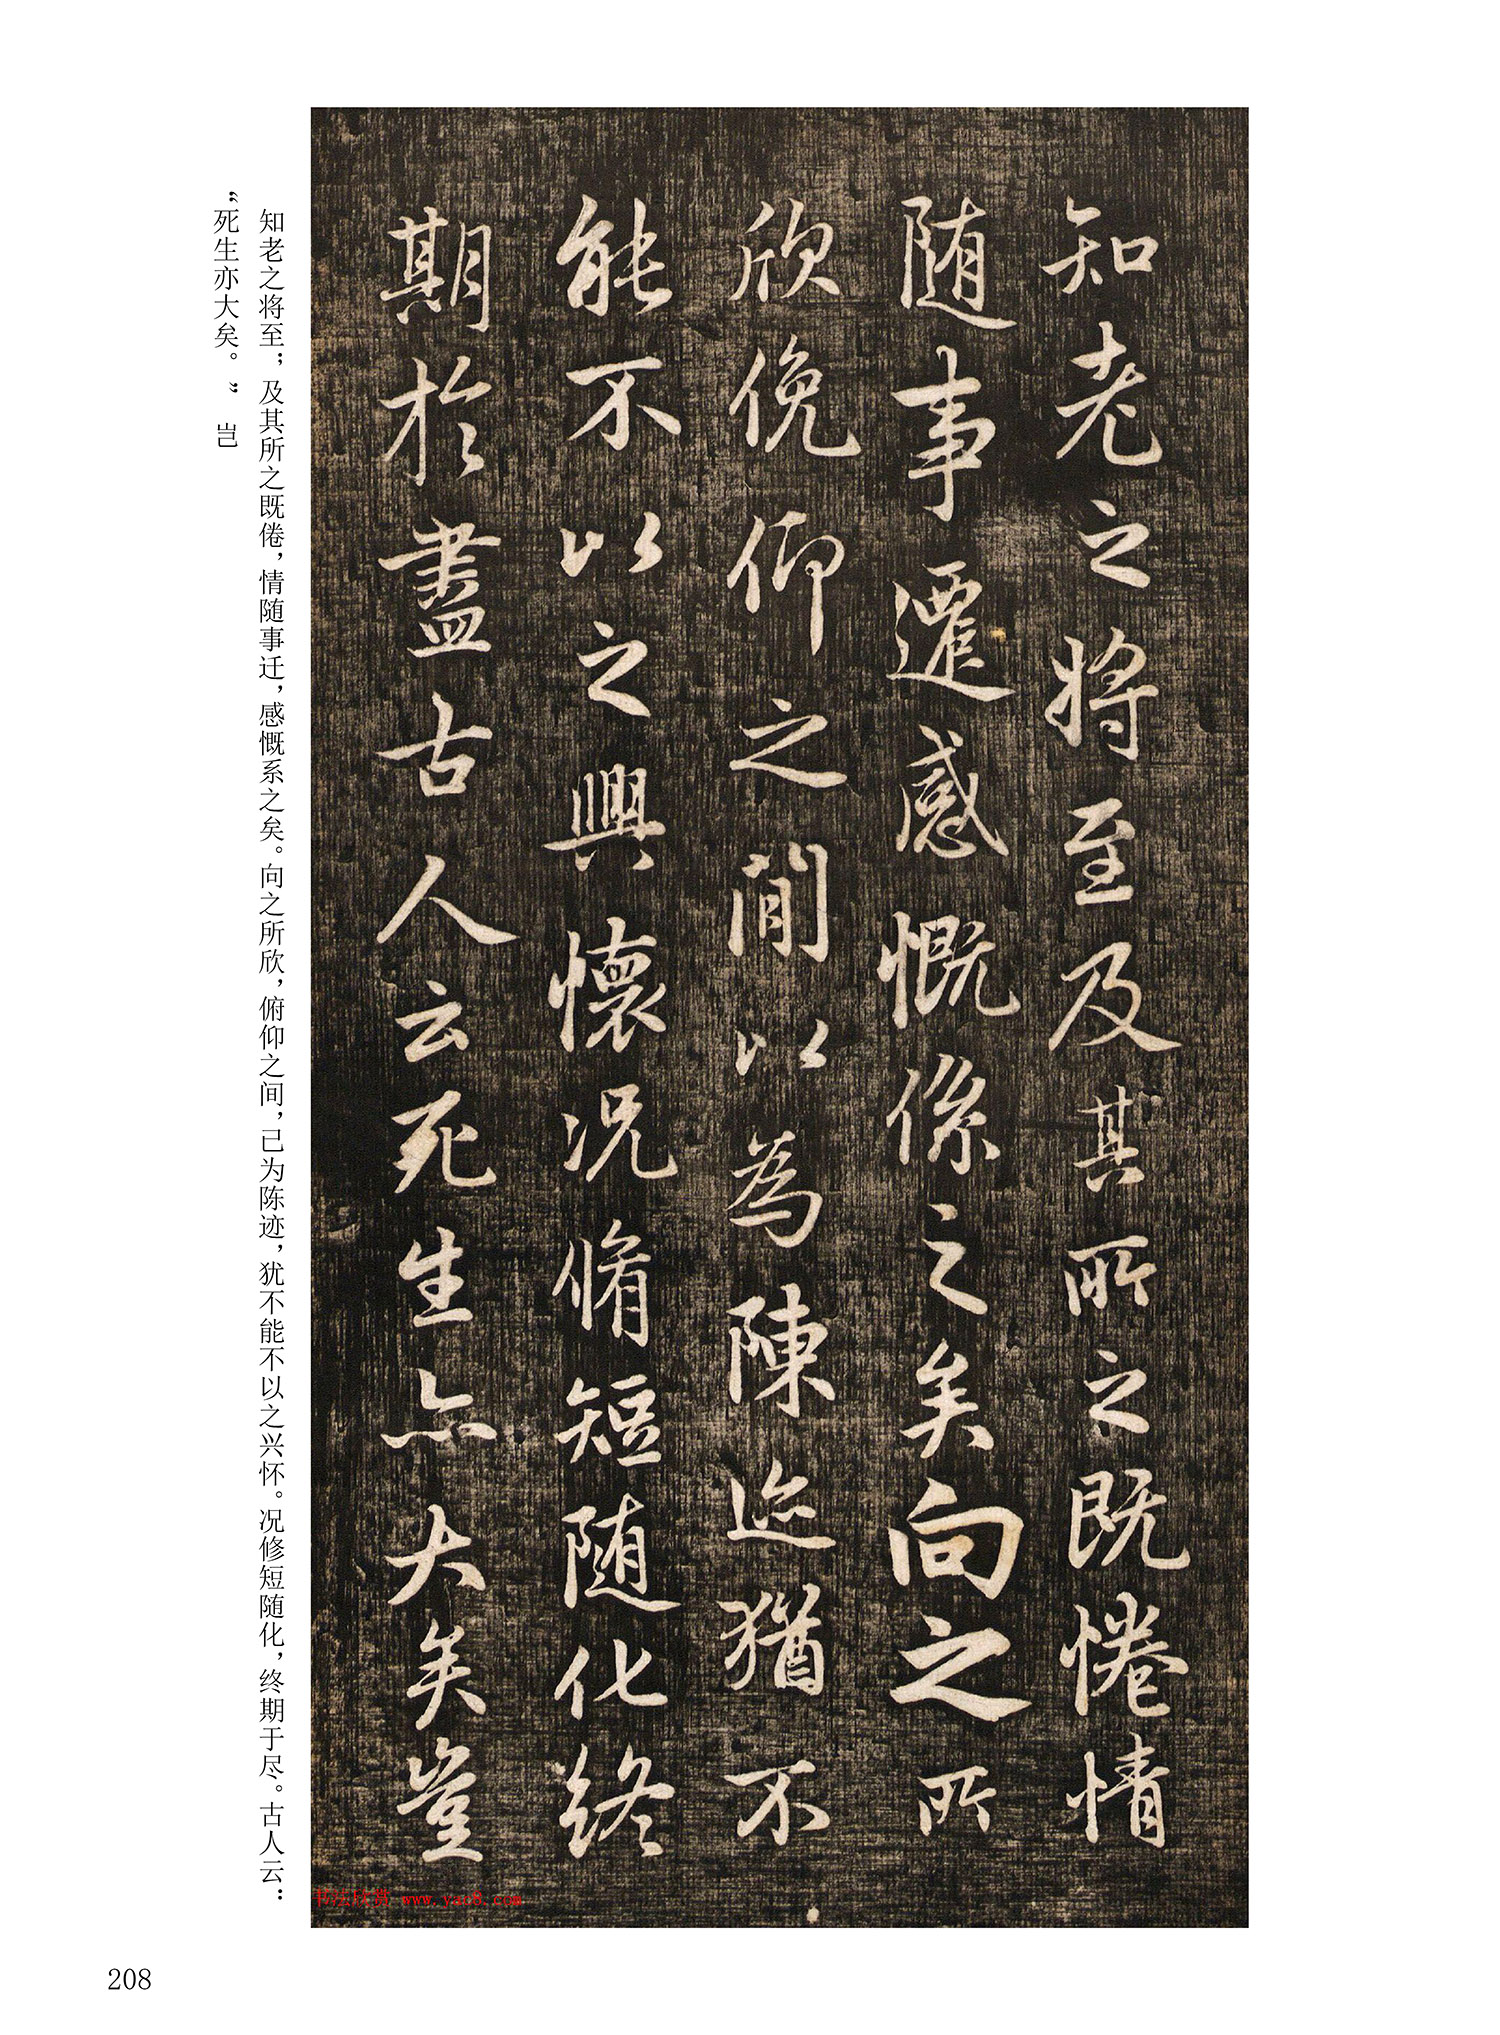 知老之将至及其所之既惓情
随事遷感慨係之矣向之所
欣俛仰之閒以為陳迹猶不
能不以之興懷况脩短随化終
期於盡古人云死生亦大矣豈
知老之将至；及其所之既倦，情随事迁，感慨系之矣。向之所欣，俯仰之间，已为陈迹，犹不能不以之兴怀。况修短随化，终期于尽。古人云：
“死生亦大矣。”岂
书法欣赏 www.yac8.com
208